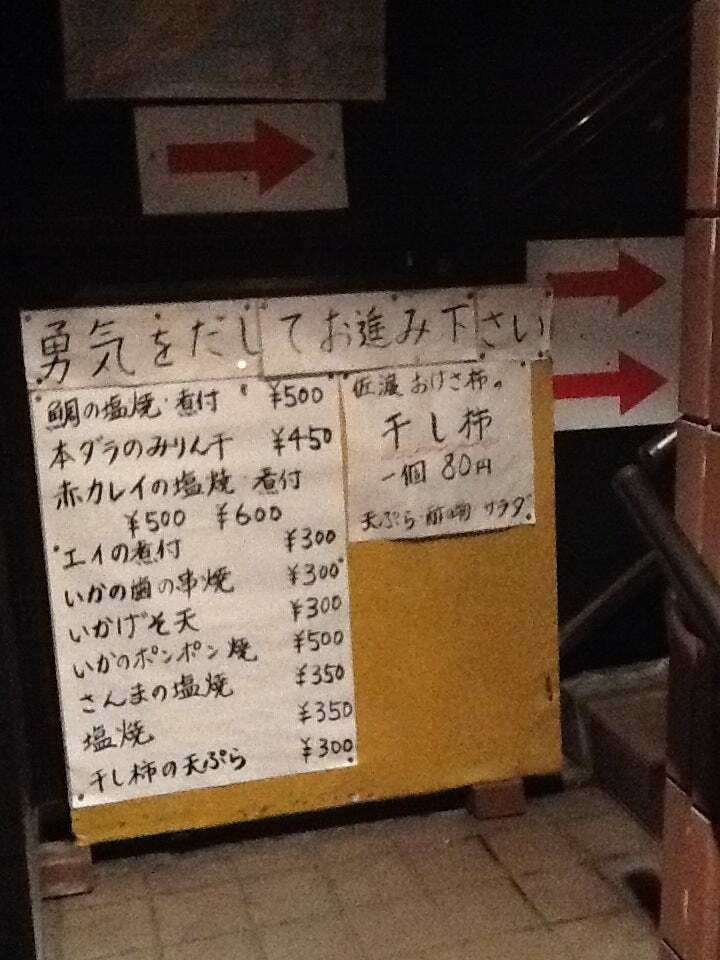 勇気をだしてお進み下さい
鯛の塩焼・煮付 ¥500
本ダラのみりん干 ¥450
赤カレイの塩焼・煮付
¥500 ¥600
エイの煮付 ¥300
いかの歯の串焼 ¥300
いかげそ天 ¥300
いかのポンポン焼 ¥500
さんまの塩焼 ¥350
塩焼 ¥350
干し柿の天ぷら ¥300
佐渡おけさ柿の
干し柿
一個 80円
天ぷら・サラダ